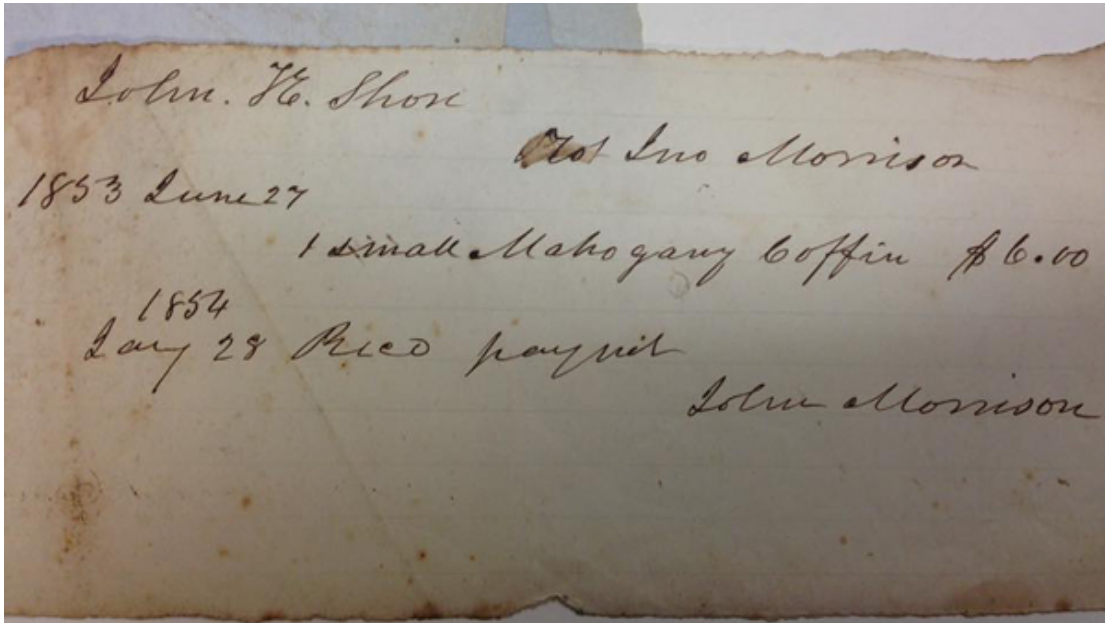 John. H. Shore
To Jno Morrison
1853 June 27
1 small Mahogany Coffin $6.00
1854
Jany 28 Recd paymt
John Morrison